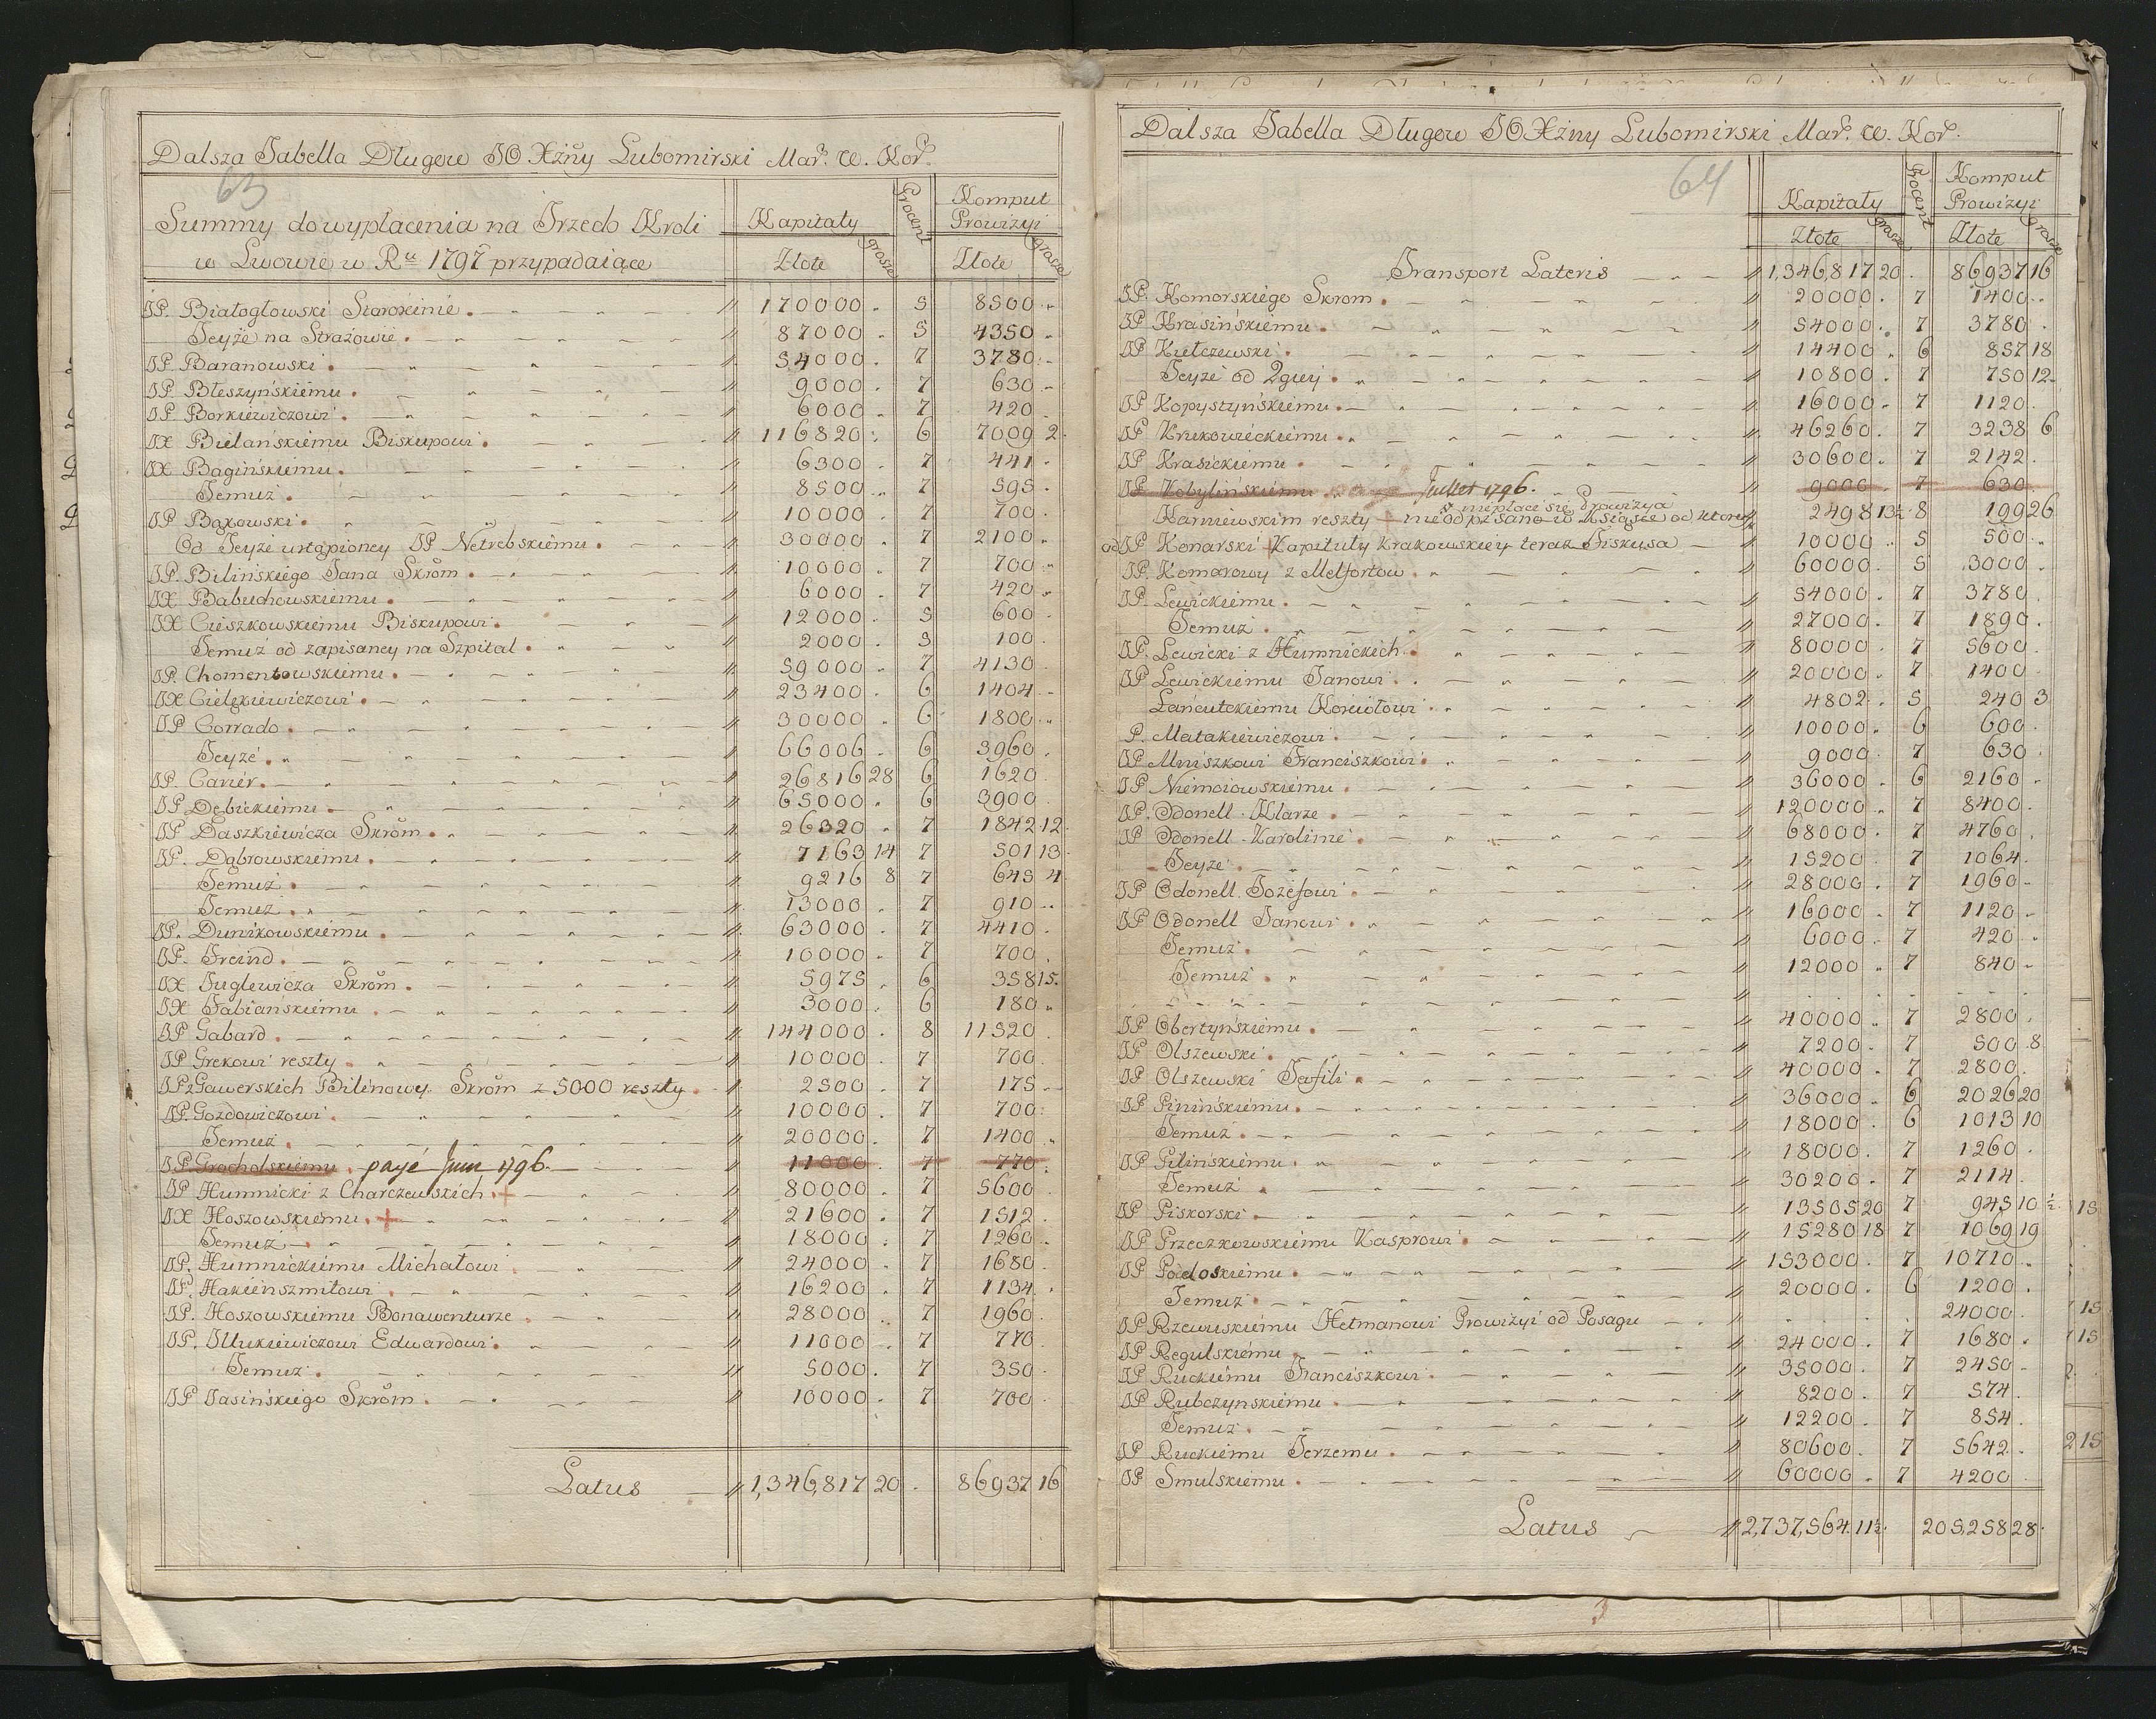 Dalsza Tabella Długow JO Xżny Lubomirski Mar. W. Kor.
63
Summy do wypłacenia na Trzech Kroli
w Lwowie w Ru 1797 przypadaiące
Kapitały Procent Komput Prowizyi
Złote grosze Złote grosze
JP. Białogłowski Starościnie. 170000 5 8500
Jeyże na Strażowie. 87000 5 4350
JP. Baranowski. 54000 7 3780
JP. Błeszyńskiemu. 9000 7 630
JP. Borkiewiczowi. 6000 7 420
JX Bielańskiemu Biskupowi. 116820 6 7009 2
JX Bagińskiemu. 6300 7 441
Temuż. 8500 7 595
JP Bąkowski. 10000 7 700
Od Jeyże ustąpioney JP Netrebskiemu. 30000 7 2100
JP. Bilińskiego Jana Skrom. 10000 7 700
JX Babuchowskiemu. 6000 7 420
JX Cieszkowskiemu Biskupowi. 12000 5 600
Temuż od zapisaney na Szpital. 2000 5 100
JP. Chomentowskiemu. 59000 7 4130
JX Cielękiewiczowi. 23400 6 1404
JP Corrado. 30000 6 1800
Jeyże. 66006 6 3960
JP. Carier. 26816 28 6 1620
JP Dębickiemu. 65000 6 3900
JP Daszkiewicza Skrom. 26320 7 1842 12
JP. Dąbrowskiemu. 7163 14 7 501 13
Temuż. 9216 8 7 645 4
Temuż. 13000 7 910
JP. Dunikowskiemu. 63000 7 4410
JP. Freind. 10000 7 700
JX Fuglewicza Skrom. 5975 6 358 15
JX Fabiańskiemu. 3000 6 180
JP Gabard. 144000 8 11520
JP Grekowi reszty. 10000 7 700
JP z Gawerskich Bilinowy Skrom z 5000 reszty. 2500 7 175
JP. Gozdowiczowi. 10000 7 700
Temuż. 20000 7 1400
JP. Grocholskiemu. payé Juin 1796. 11000 7 770
JP Humnicki z Charczewskich. + 80000 7 5600
JX Hoszowskiemu. + 21600 7 1512
Temuż 18000 7 1260
JP. Humnickiemu Michałowi 24000 7 1680
JP. Hakienszmitowi. 16200 7 1134
JP. Hoszowskiemu Bonawenturze. 28000 7 1960
JP. Illukiewiczowi Edwardowi. 11000 7 770
Temuż. 5000 7 350
JP Jasińskiego Skrom. 10000 7 700
Latus 1,346,817 20 86937 16
Dalsza Tabella Długow JO Xżny Lubomirski Mar. W. Kor.
64
Kapitały Procent Komput Prowizyi
Złote grosze Złote grosze
Transport Lateris 1,346,817 20 86937 16
JP. Komorskiego Skrom. 20000 7 1400
JP Krasińskiemu. 54000 7 3780
JP Kiełczewski. 14400 6 857 18
Jeyże od 2giey. 10800 7 750 12
JP Kopystyńskiemu. 16000 7 1120
JP Krukowieckiemu. 46260 7 3238 6
JP Krasickiemu. 30600 7 2142
JP Kobylińskiemu Jullet 1796. 9000 7 630
niepłaci się Prowizya
Karniewskim reszty + nieodpisano w Xsiągce od ktorey 2498 13½ 8 199 26
od JP Konarski Kapituły Krakowskiey teraz Fiskusa 10000 5 500
JP. Komarowy z Melfortow. 60000 5 3000
JP. Lewickiemu. 54000 7 3780
Temuż. 27000 7 1890
JP. Lewicki z Humnickich. 80000 7 5600
JP Lewickiemu Janowi. 20000 7 1400
Łańcutckiemu Kosciołowi. 4802 5 240 3
P. Matakiewiczowi. 10000 6 600
JP Mniszkowi Franciszkowi. 9000 7 630
JP Niemoiowskiemu. 36000 6 2160
JP. Odonell Klarze. 120000 7 8400
JP Odonell Karolinie. 68000 7 4760
Jeyże. 15200 7 1064
JP Odonell Jozefowi. 28000 7 1960
JP Odonell Janowi. 16000 7 1120
Temuż. 6000 7 420
Temuż. 12000 7 840
JP Obertyńskiemu. 40000 7 2800
JP Olszewski. 7200 7 500 8
JP Olszewski Tafili. 40000 7 2800
JP Pinińskiemu. 36000 6 2026 20
Temuż. 18000 6 1013 10
JP Pilińskiemu. 18000 7 1260
Temuż. 30200 7 2114
JP Piskorski. 13505 20 7 945 10 ½
JP Przeczkowskiemu Kasprowi. 15280 18 7 1069 19
JP Podoskiemu. 153000 7 10710
Temuż. 20000 6 1200
JP Rzewuskiemu Hetmanowi Prowizyi od Posagu 24000
JP Regulskiemu. 24000 7 1680
JP Ruckiemu Franciszkowi. 35000 7 2450
JP Rubczynskiemu. 8200 7 574
Temuż. 12200 7 854
JP Ruckiemu Jerzemu. 80600 7 5642
JP Smulskiemu. 60000 7 4200
Latus 2,737,564 11½ 205,258 28